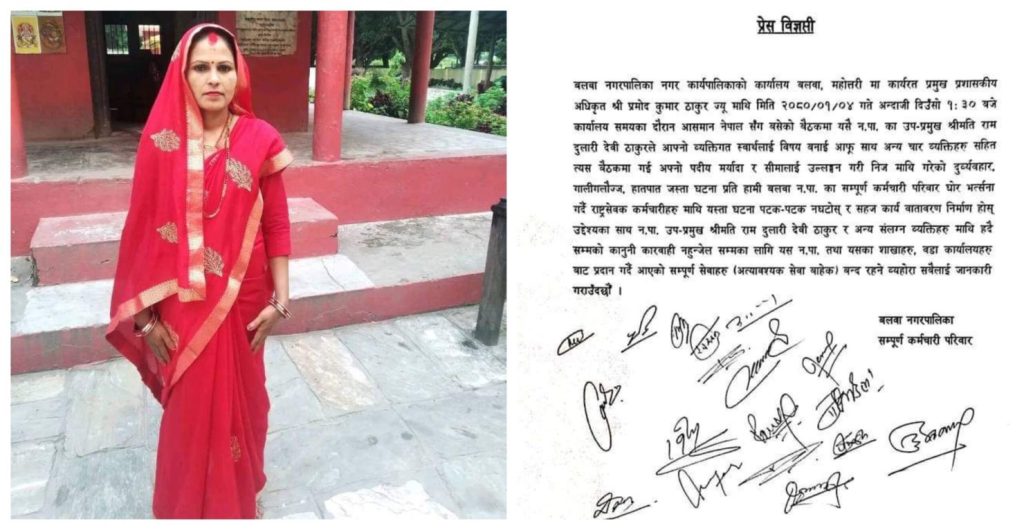 प्रेस विज्ञप्ती
बलबा नगरपालिका नगर कार्यपालिकाको कार्यालय बलवा, महोत्तरी मा कार्यरत प्रमुख प्रशासकीय
अधिकृत श्री प्रमोद कुमार ठाकुर ज्यू माथि मिति २०८०/०१/०४ गते अन्दाजी दिउँसो १:३० बजे
कार्यालय समयका दौरान आसमान नेपाल सँग बसेको बैठकमा यसै न.पा. का उप-प्रमुख श्रीमति राम
दुलारी देवी ठाकुरले आफ्नो व्यक्तिगत स्वार्थलाई विषय बनाई आफू साथ अन्य चार व्यक्तिहरु सहित
त्यस बैठकमा गई अफ्नो पदीय मर्यादा र सीमालाई उल्लङ्घन गरी निज माथि गरेको दुर्व्यवहार,
गालीगलौज्ज, हातपात जस्ता घटना प्रति हामी बलबा न.पा. का सम्पूर्ण कर्मचारी परिवार घोर भर्त्सना
गर्दै राष्ट्रसेवक कर्मचारीहरु माथि यस्ता घटना पटक-पटक नघटोस् र सहज कार्य वातावरण निर्माण होस्
उद्देश्यका साथ न.पा. उप-प्रमुख श्रीमति राम दुलारी देवी ठाकुर र अन्य संलग्न व्यक्तिहरु माथि हदै
सम्मको कानुनी कारबाही नहुन्जेल सम्मका लागि यस न.पा. तथा यसका शाखाहरु, वडा कार्यालयहरु
बाट प्रदान गर्दै आएको सम्पूर्ण सेबाहरु (अत्याबश्यक सेवा बाहेक) बन्द रहने व्यहोरा सबैलाई जानकारी
गराउँदछौँ ।
बलबा नगरपालिका
सम्पूर्ण कर्मचारी परिवार